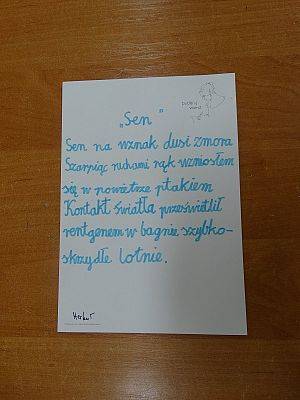 „Sen"
Sen na wznak dusi zmora
Szarpiąc ruchami rąk wzniosłem
się w powietrze ptakiem
Kontakt światła prześwietlił
rentgenem w bagnie szybko-
skrzydłe lotnie.